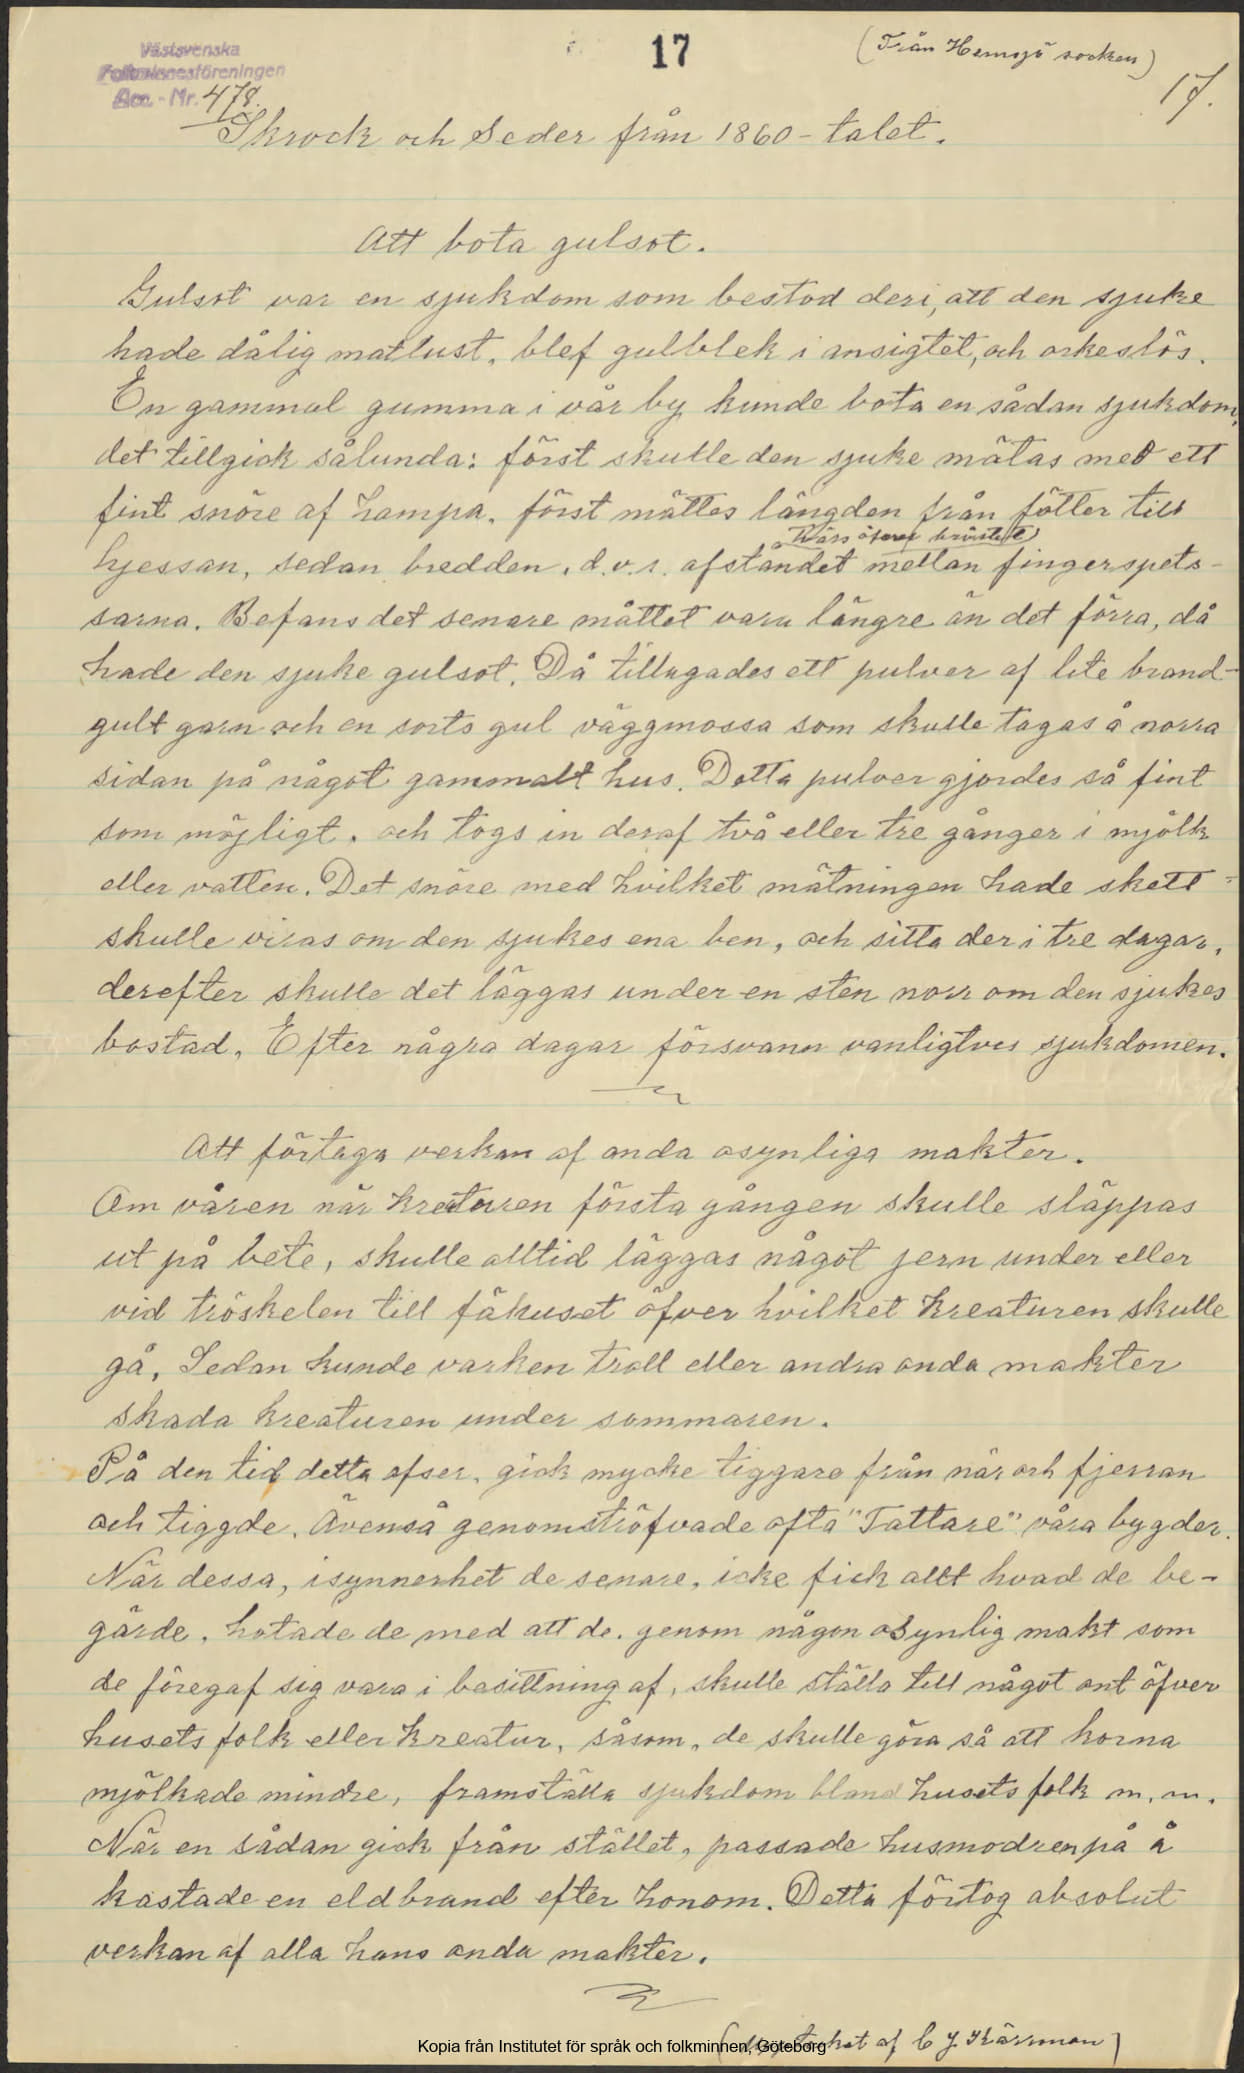 Västsvenska
Folkminnesföreningen
Acc.-Nr. 478.
17
(Från Hemsjö socken)
17.
Skrock och Seder från 1860-talet.
Att bota gulsot.
Gulsot var en sjukdom som bestod deri, att den sjuke
hade dålig matlust, blef gulblek i ansigtet, och orkeslös.
En gammal gumma i vår by kunde bota en sådan sjukdom,
det tillgick sålunda: först skulle den sjuke mätas med ett
fint snöre af hampa, först mättes längden från fötter till
(tvärs öfver bröstet)
hjessan, sedan bredden, d.v.s. afståndet mellan fingerspets-
sarna. Befans det senare måttet vara längre än det förra, då
hade den sjuke gulsot. Då tillagades ett pulver af lite brand-
gult garn och en sorts gul väggmossa som skulle tagas å norra
sidan på något gammalt hus. Detta pulver gjordes så fint
som möjligt, och togs in deraf två eller tre gånger i mjölk
eller vatten. Det snöre med hvilket mätningen hade skett
skulle viras om den sjukes ena ben, och sitta der i tre dagar,
derefter skulle det läggas under en sten norr om den sjukes
bostad. Efter några dagar försvann vanligtvis sjukdomen.
Att förtaga verkan af onda osynliga makter.
Om våren när kreaturen första gången skulle släppas
ut på bete, skulle alltid läggas något jern under eller
vid tröskelen till fähuset öfver hvilket kreaturen skulle
gå. Sedan kunde varken troll eller andra onda makter
skada kreaturen under sommaren.
På den tid detta afser, gick mycke tiggare från när och fjerran
och tiggde. Ävenså genomströfvade ofta "Tattare" våra bygder.
När dessa, isynnerhet de senare, icke fick allt hvad de be-
gärde, hotade de med att de, genom någon osynlig makt som
de föregaf sig vara i besittning af, skulle ställa till något ont öfver
husets folk eller kreatur, såsom, de skulle göra så att korna
mjölkade mindre, framställa sjukdom bland husets folk m. m.
När en sådan gick från stället, passade husmodren på å
kastade en eldbrand efter honom. Detta förtog absolut
verkan af alla hans onda makter.
af C J Kärrman)
Kopia från Institutet för språk och folkminnen, Göteborg